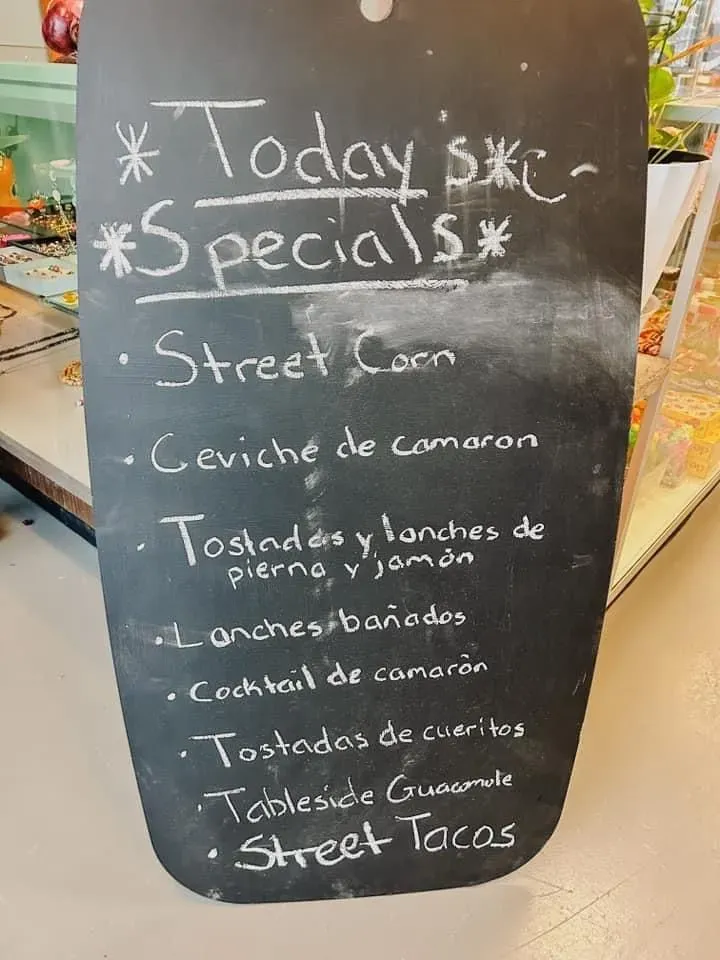 *Today s*
*Specials*
• Street Corn
• Ceviche de camaron
• Tostadas y lonches de
pierna y jamón
• Lonches bañados
• Cocktail de camarón
• Tostadas de cueritos
• Tableside Guacamole
• Street Tacos